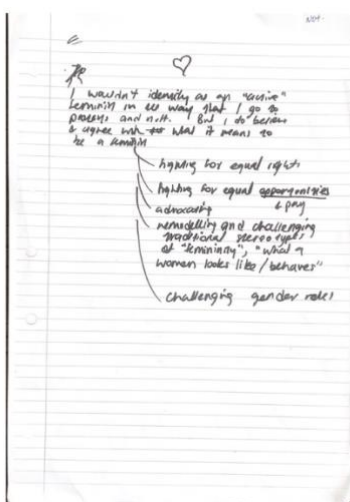 I wouldn't identify as an "active"
feminist in the way that I go to
protests and riots. But I do believe
& agree with what it means to
be a feminist
fighting for equal rights
fighting for equal opportunities
& pay
advocating
remodelling and challenging
traditional stereotypes
of "femininity", "what a
women looks like / behaves"
challenging gender roles